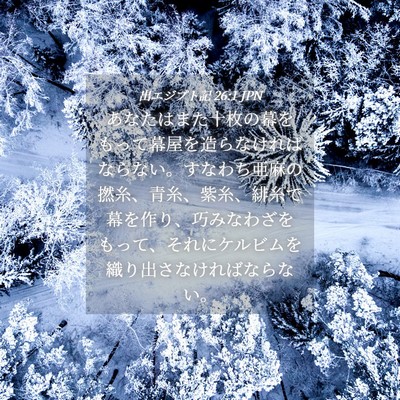 出エジプト記 26:1 JPN
あなたはまた十枚の幕を
もって幕屋を造らなければ
ならない。すなわち亜麻の
撚糸、青糸、紫糸、緋糸で
幕を作り、巧みなわざを
もって、それにケルビムを
織り出さなければならな
い。